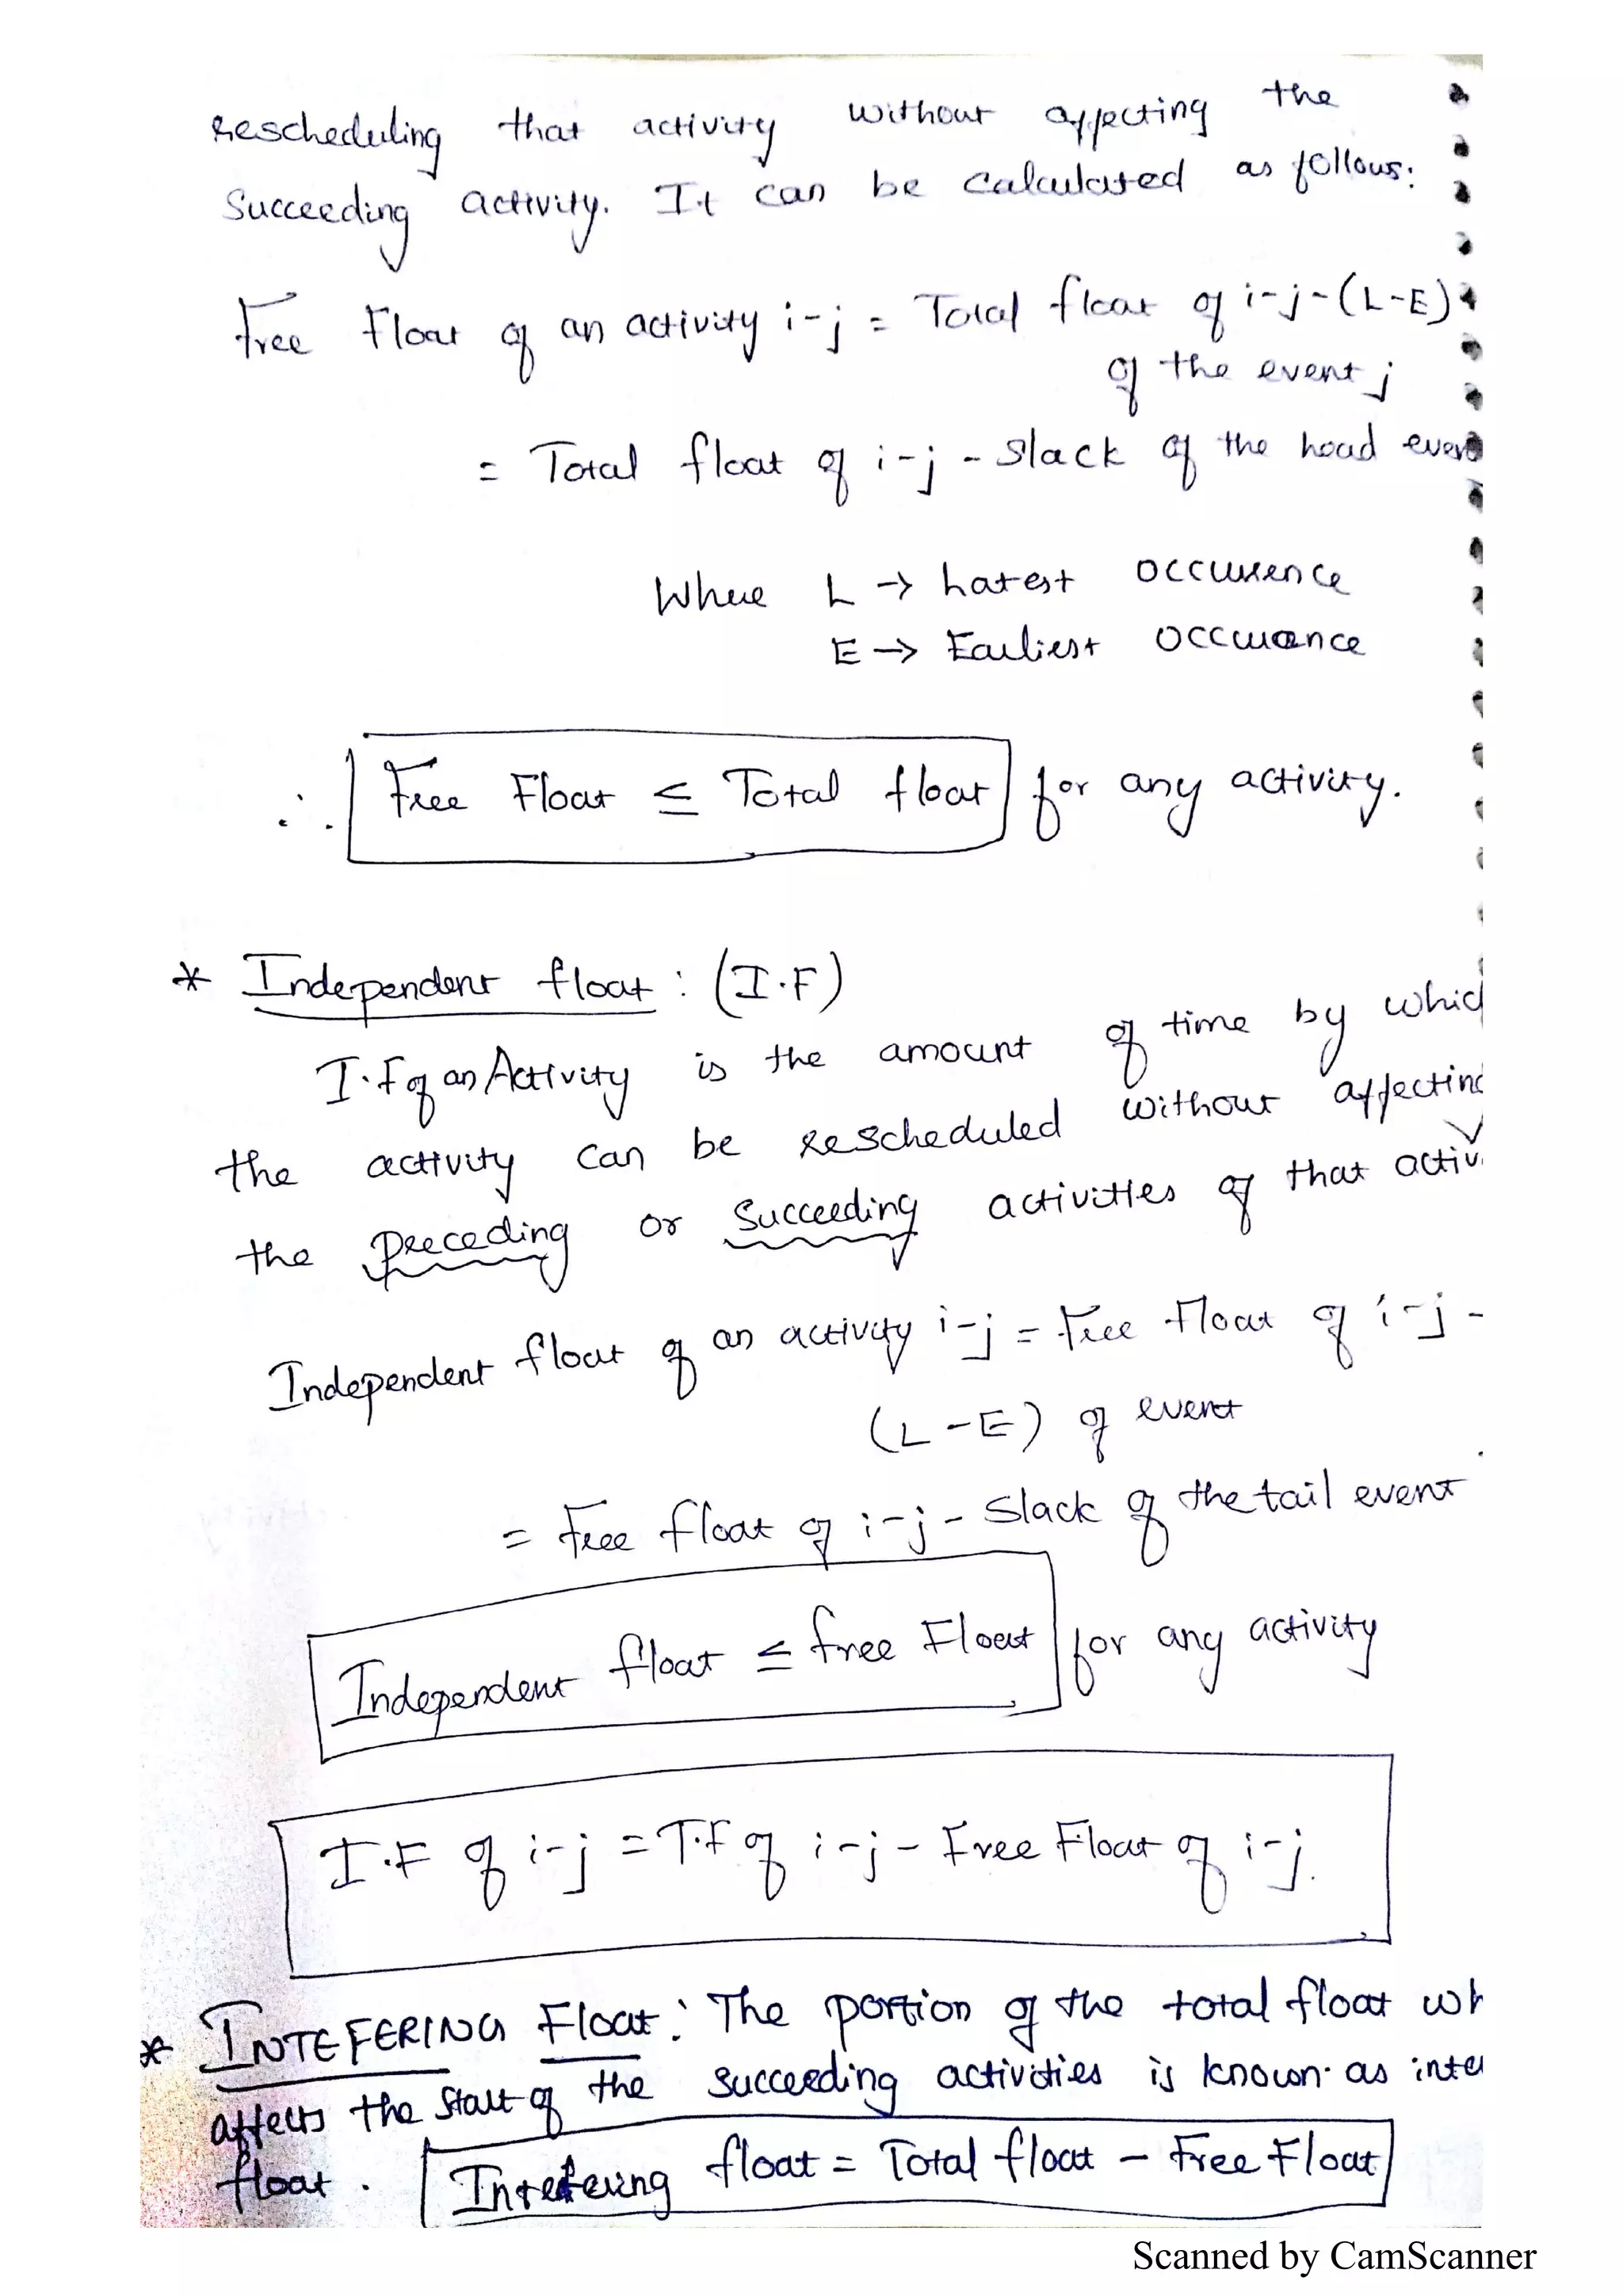 Rescheduling that activity without affecting the
Succeeding activity. It can be calculated as follows:
Free Float of an activity i-j = Total float of i-j-(L-E)
of the event j
= Total float of i-j - Slack of the head event
Where L → Latest occurence
E → Earliest occurance
∴ Free Float ≤ Total float for any activity.
* Independent float : (I.F)
I.F of an Activity is the amount of time by which
the activity can be rescheduled without affecting
the preceding or succeeding activities of that activ
Independent float of an activity i-j = Free Float of i-j -
(L-E) of event
= Free float of i-j - Slack of the tail event
Independent float ≤ free Float for any activity
I.F of i-j = T.F of i-j - Free Float of i-j.
* INTEFERING Float: The portion of the total float wh
affects the start of the succeeding activities is known as inte
float. Intefering float = Total float - Free Float
Scanned by CamScanner